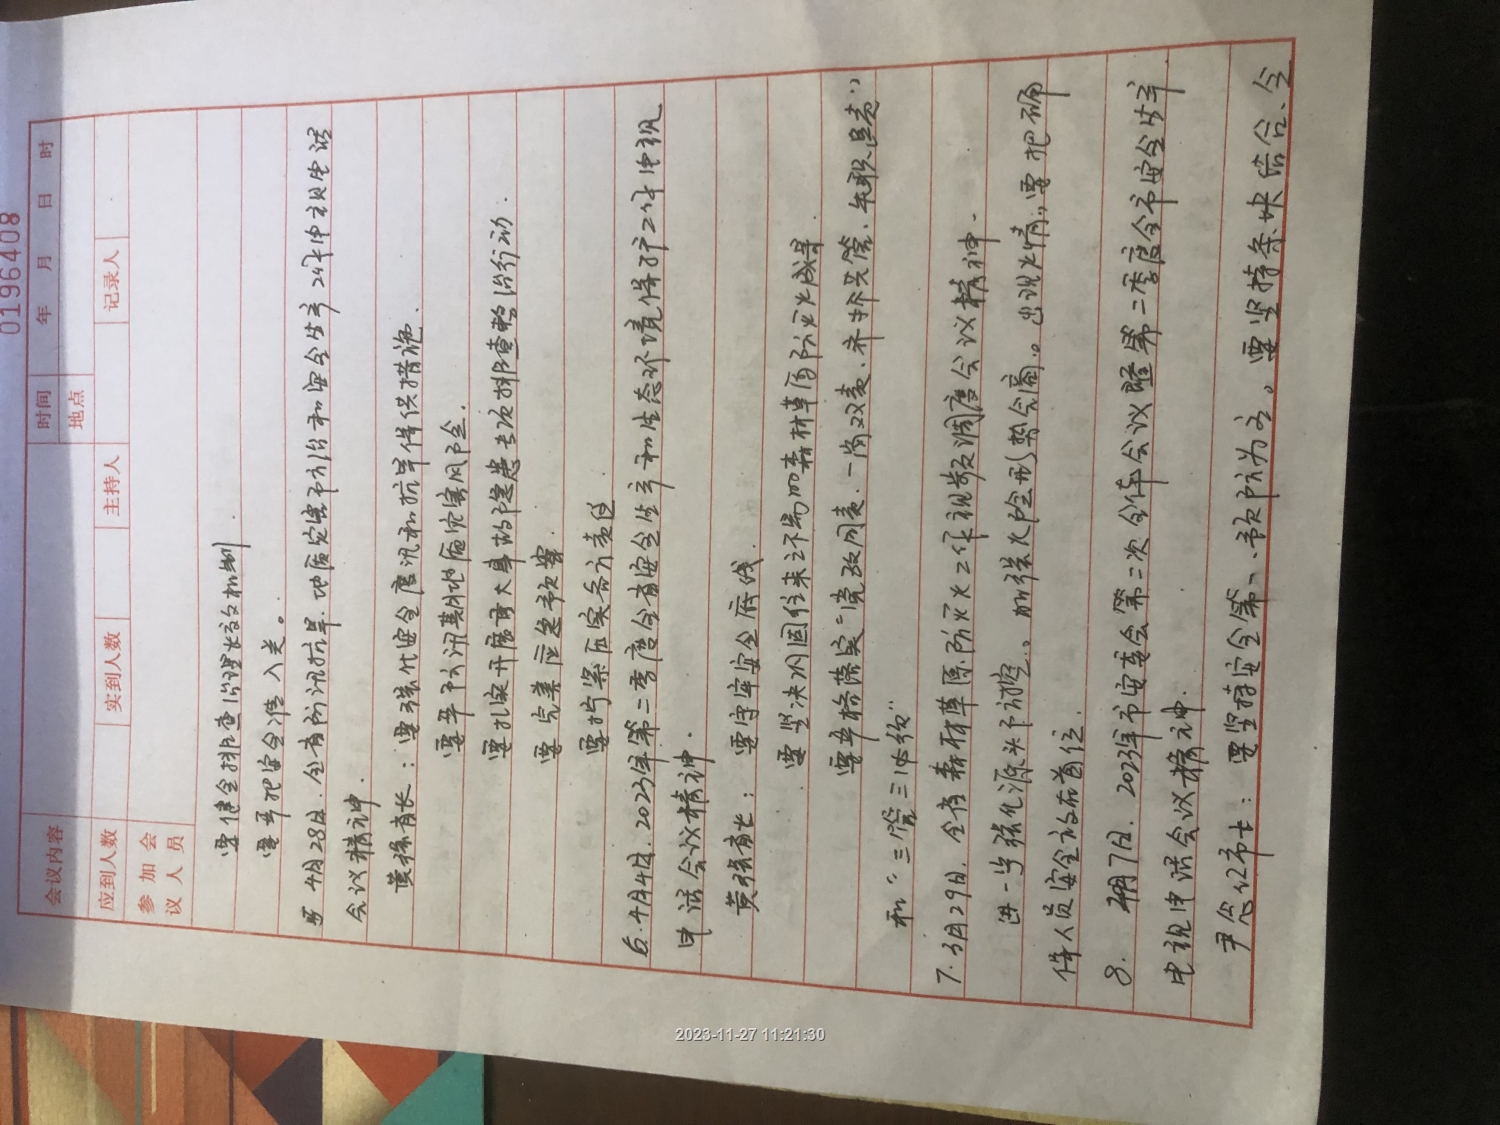 0196408
会议内容 时间 年 月 日 时
地点
应到人数 实到人数 主持人 记录人
参加会
议人员
要健全排查治理长效机制.
要严把安全准入关。
5 4月28日.全省防汛抗旱.地质灾害防治和安全生产工作电视电话
会议精神
黄 省长：要强化安全度汛和抗旱保供措施.
要严密 汛期地质灾害风险.
要扎实开展重大事故隐患专项排查整治行动.
要完善应急预案.
要拧紧压实各方责任
6.4月4日.2023年第二季度全省安全生产和生态环境保护工作电视
电话会议精神.
黄 省长：要守牢安全底线
要坚决巩固住来之不易的森林草原防灭火成果
要严格落实"党政同责.一岗双责.齐抓共管.失职追责"
和"三管三必须"
7.3月29日.全省森林草原防灭火工作视频调度会议精神.
进一步强化源头予防 .加强火险形势会商。出现火情,要把确
保人员安全放在首位.
8. 4月7日.2023年市安委会第二次全体会议暨第二季度全市安全生产
电视电话会议精神.
尹 市长：要坚持安全第一、予防为主。要坚持条块结合、全
2023-11-27 11:21:30